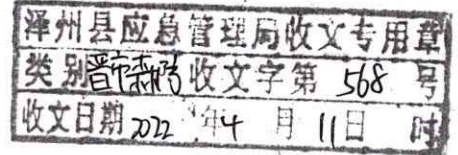 泽州县应急管理局收文专用章
类别晋市森防收文字第 568 号
收文日期 2022 年 4 月 11 日 时